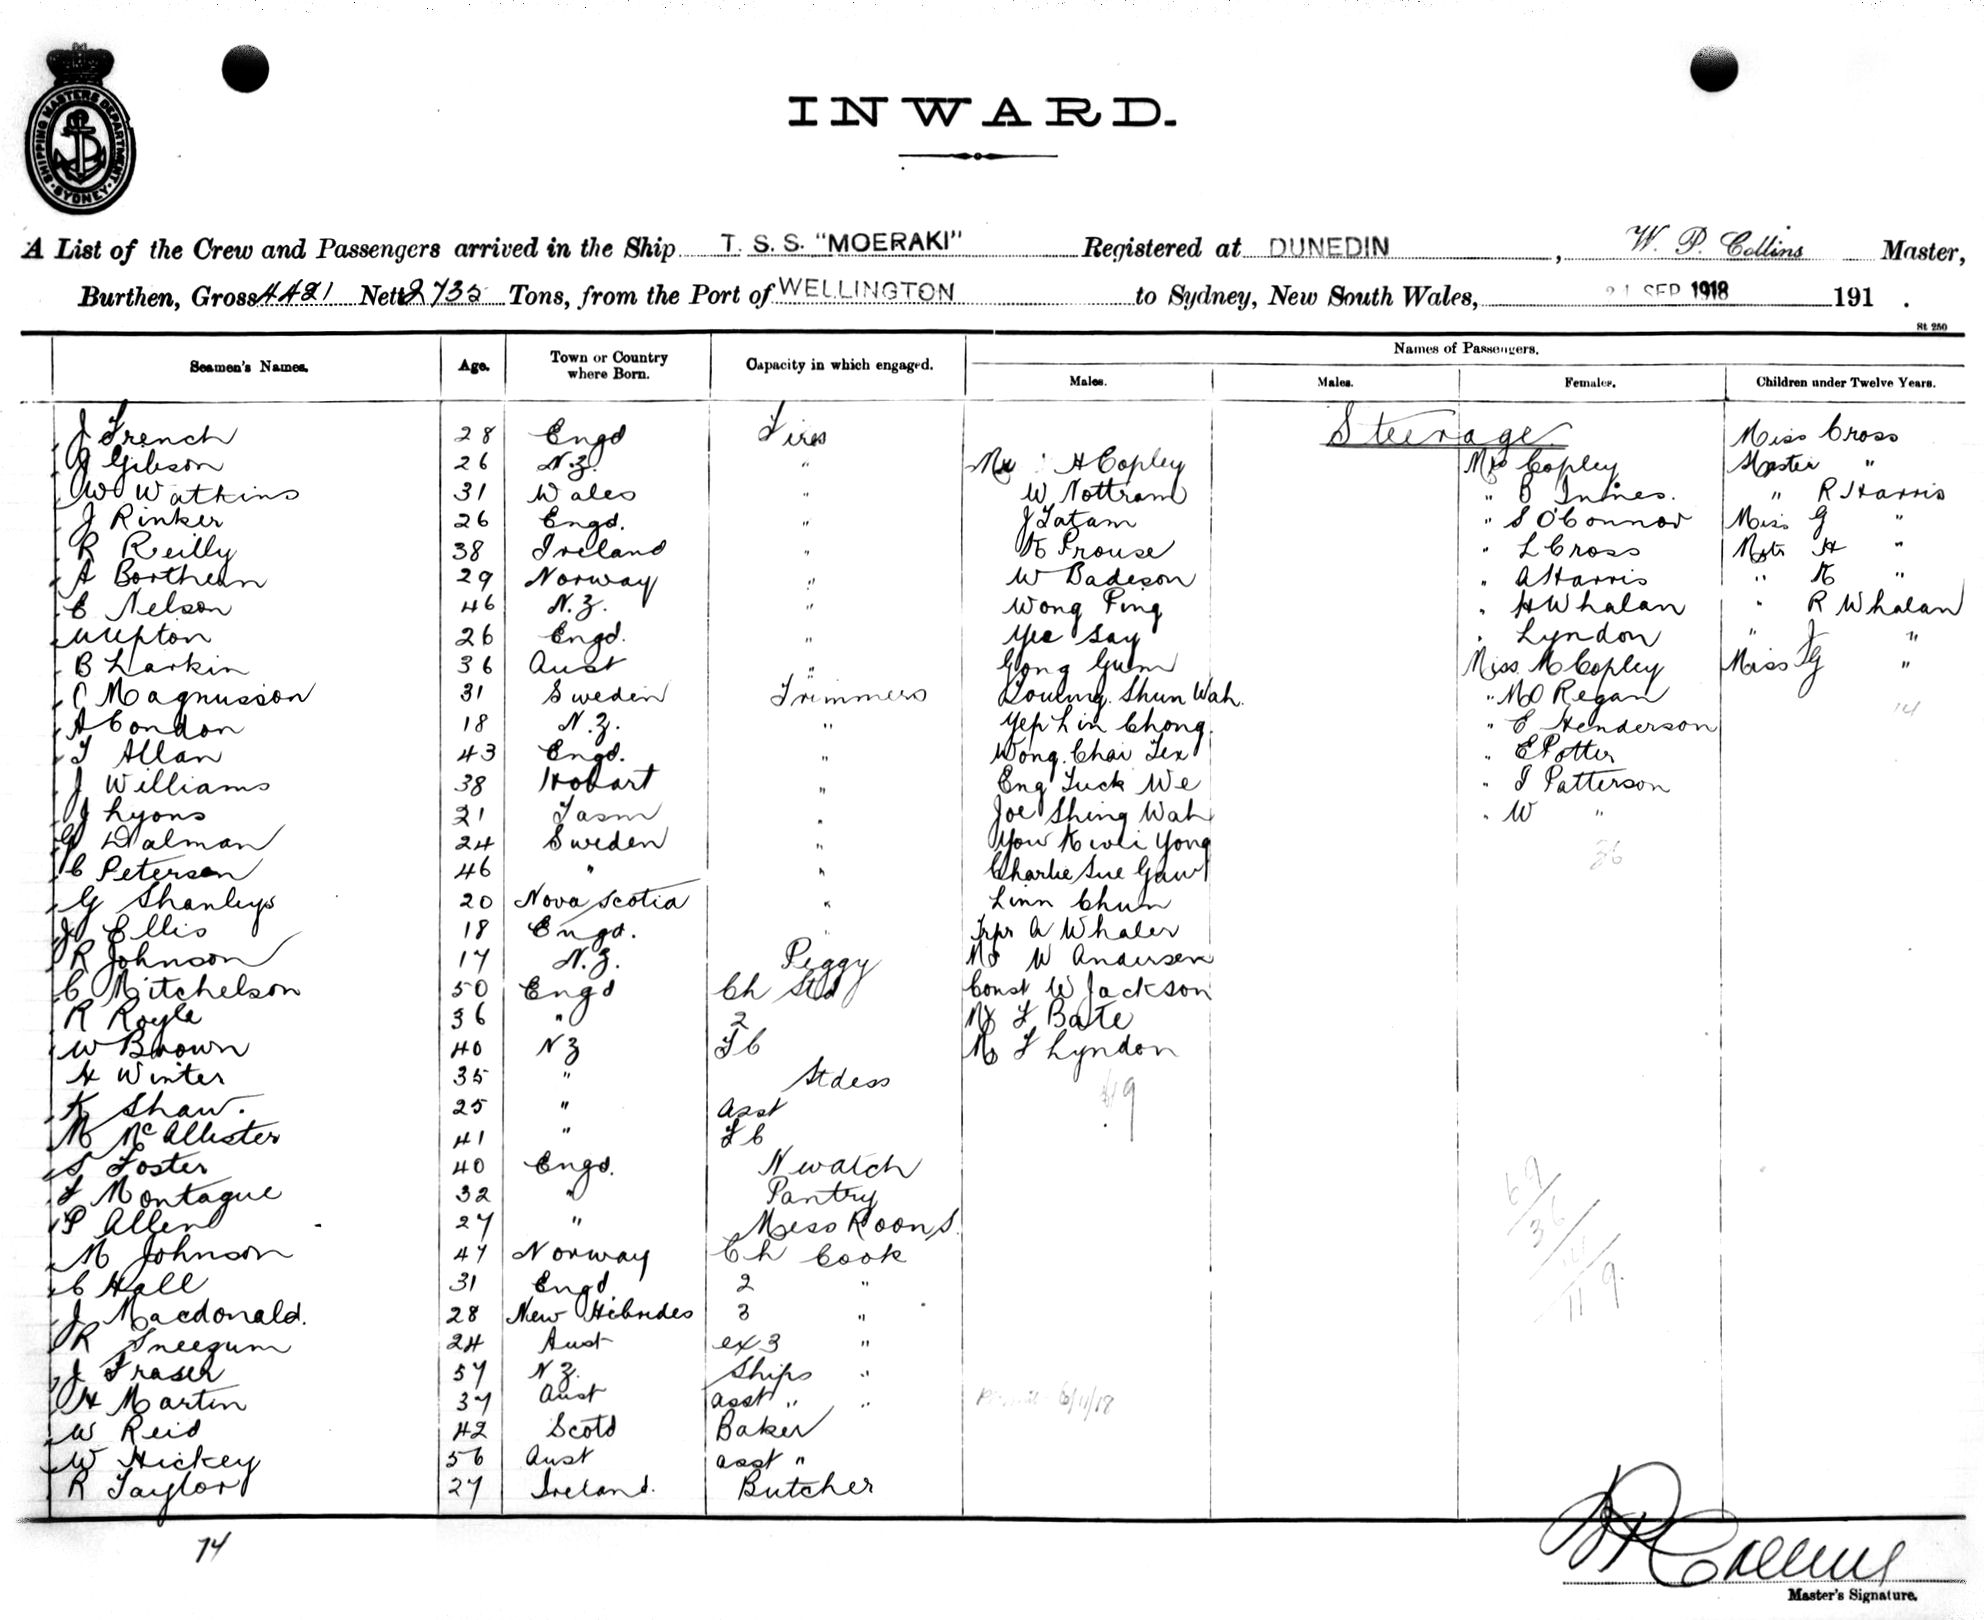 SHIPPING MASTERS DEPARTMENT
SYDNEY
INWARD.
A List of the Crew and Passengers arrived in the Ship T. S. S. "MOERAKI" Registered at DUNEDIN, W. P. Collins Master,
Burthen, Gross 4421 Nett 2735 Tons, from the Port of WELLINGTON to Sydney, New South Wales, SEP 1918 191 .
St 250
Seamen's Names. Age. Town or Country where Born. Capacity in which engaged. Names of Passengers.
Males. Males. Females. Children under Twelve Years.
J French 28 Engd Fires Steerage Miss Cross
J Gibson 26 N.Z. " Mr H Copley Mrs Copley Master "
W Watkins 31 Wales " W Nottram " B Innes. " R Harris
J Rinker 26 Engd. " J Tatam " S O'Connor Miss G "
R Reilly 38 Ireland " K Prouse " L Cross Mstr H "
A Borthen 29 Norway " W Badeson " A Harris " K "
C Nelson 46 N.Z. " Wong Ping " H Whalan " R Whalan
Upton 26 Engd. " Yee Say " Lyndon " J "
B Larkin 36 Aust " Gong Gum Miss M Copley Miss G "
C Magnusson 31 Sweden Trimmers Shun Wah. " M Regan
A Condon 18 N.Z. " Yep Lin Chong. " E Henderson 14
T Allan 43 Engd. " Wong Chai Tex " E Potter
J Williams 38 Hobart " Eng Tuck We " I Patterson
J Lyons 21 Tasm " Joe Shing Wah " W "
G Dalman 24 Sweden " You Kwei Yong
C Peterson 46 " " Charlie Sue Gaw 36
G Shanleys 20 Nova Scotia " Linn Chun
J Ellis 18 Engd. " Trpr A Whaler
R Johnson 17 N.Z. Peggy Mr W Andersen
C Mitchelson 50 Engd Ch Std Const W Jackson
R Royle 36 " 2 Mr F Bate
W Brown 40 NZ F C Mr F Lyndon
H Winter 35 " Stdess
K Shaw. 25 " asst
M McAllister 41 " F C
S Foster 40 Engd. N watch
F Montague 32 " Pantry
P Allen 27 " Mess Room S.
M Johnson 47 Norway Ch Cook
C Hall 31 Engd 2 "
J Macdonald. 28 New Hebrides 3 "
R Sneegum 24 Aust ex 3 "
J Fraser 57 N.Z. Ships "
H Martin 37 Aust asst " " 6/11/18
W Reid 42 Scotd Baker
W Hickey 56 Aust asst "
R Taylor 27 Ireland. Butcher
74
Master's Signature.